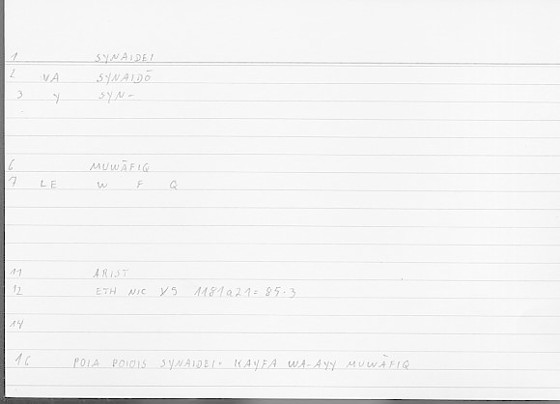 1 SYNAIDEI
2 VA SYNAIDŌ
3 Y SYN-
6 MUWĀFIQ
7 LE W F Q
11 ARIST
12 ETH NIC 1181a21= 85.3
14
16 POIA POIOIS SYNAIDEI. KAYFA WA-AYY MUWĀFIQ